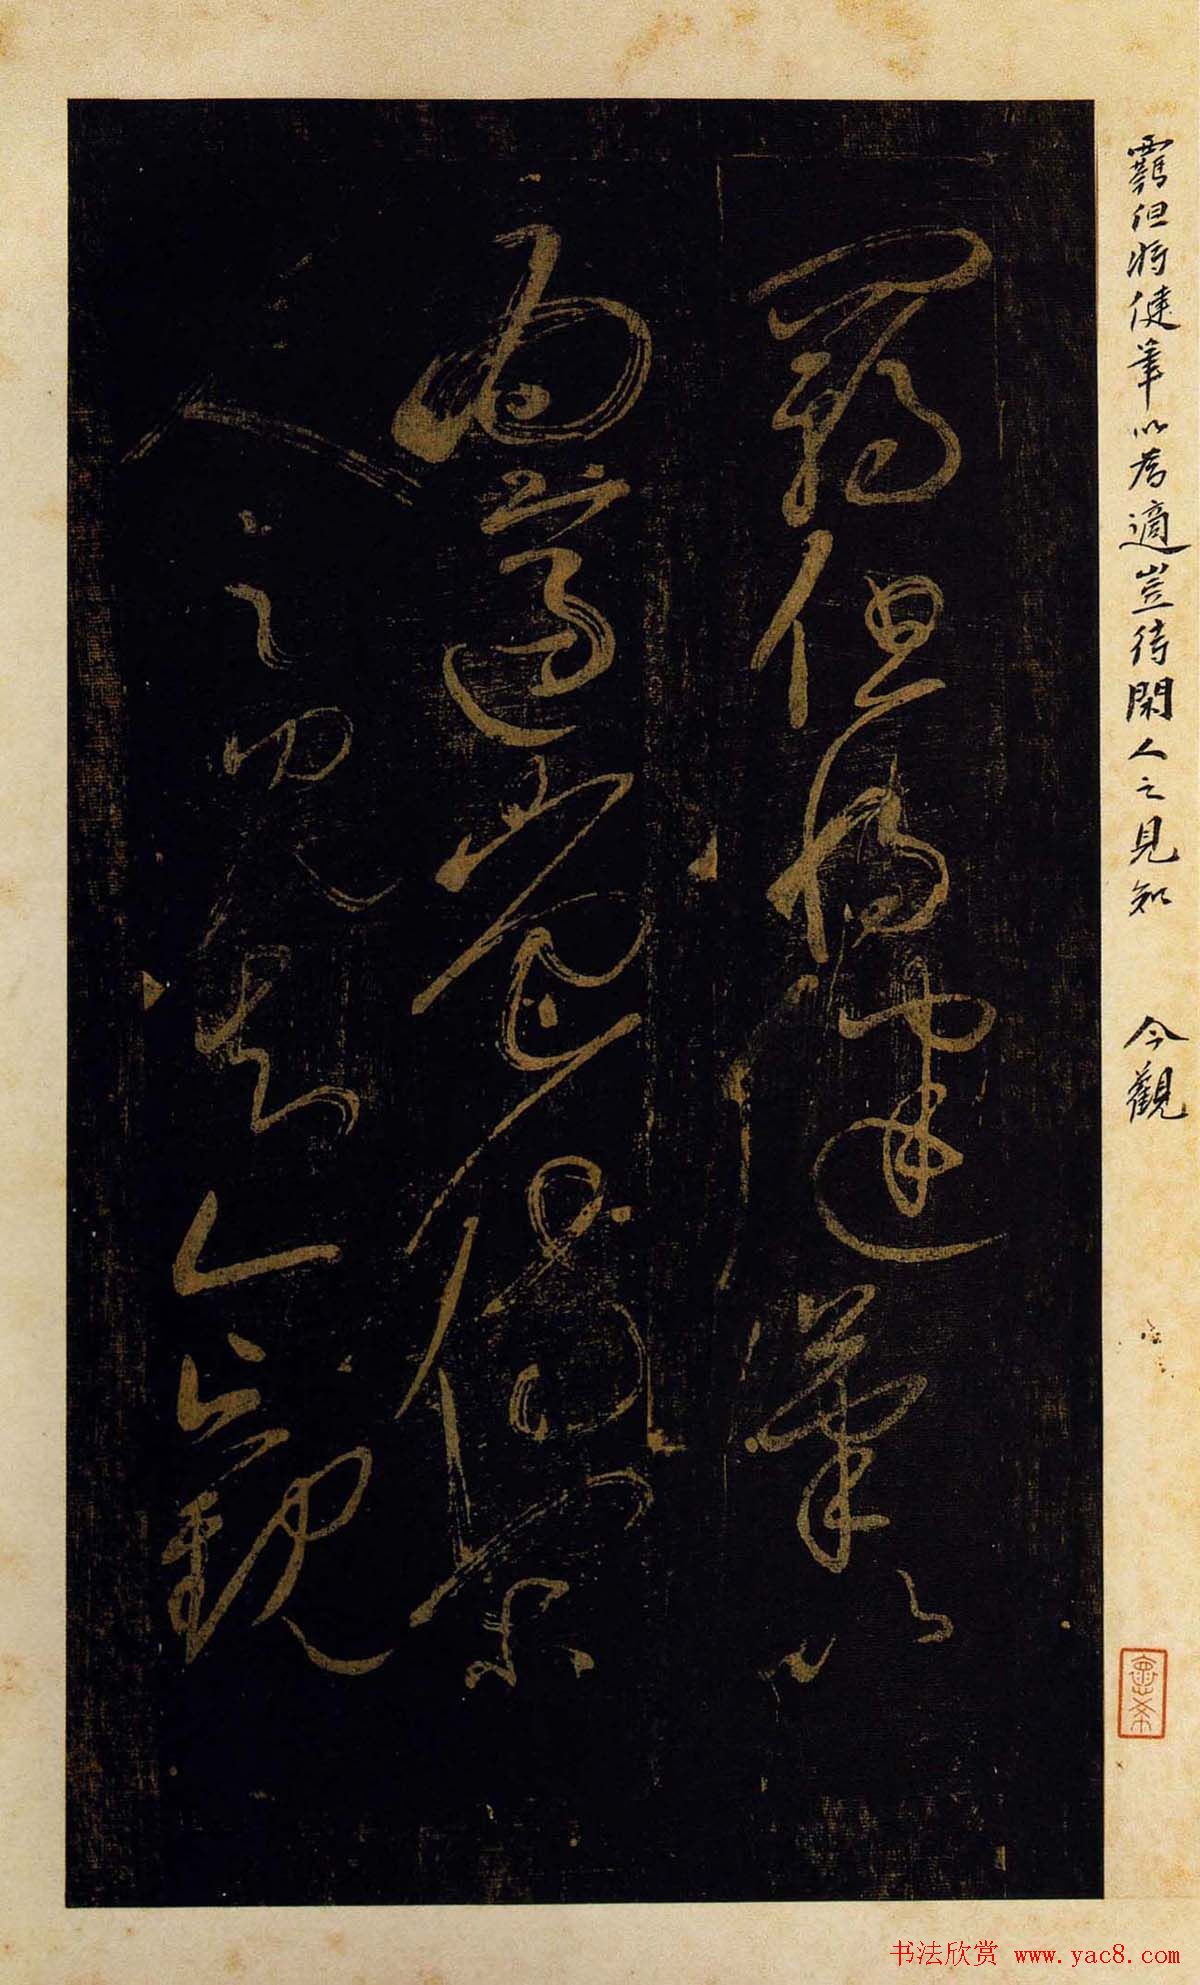 覊但将健筆以為適豈待閑人之見知 今觀
覊但将健筆以
為適豈待閑
人之見知今觀
书法欣赏 www.yac8.com